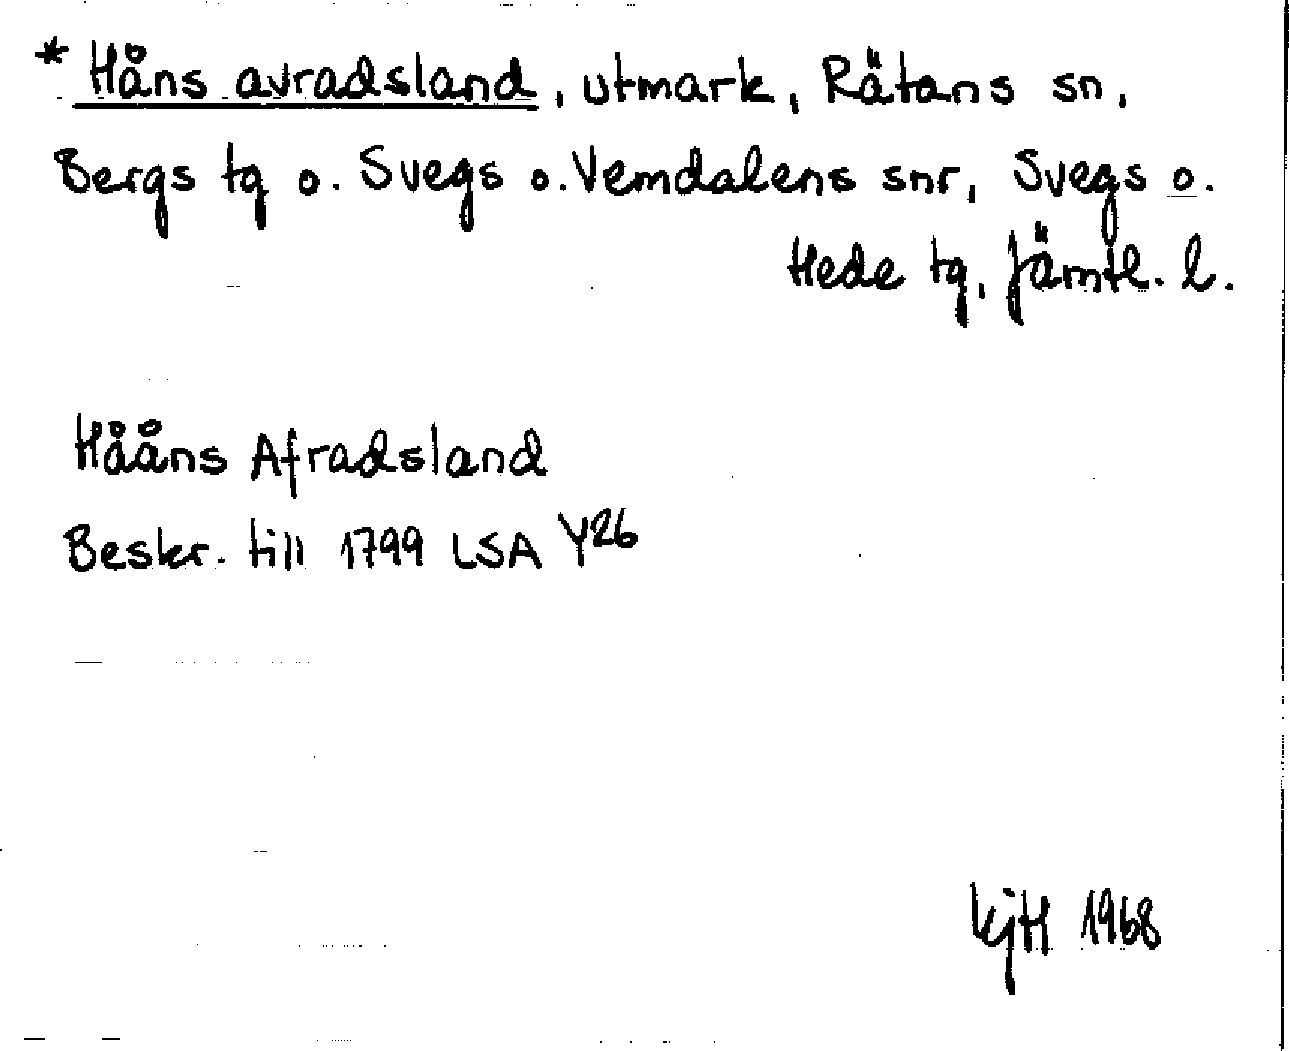 * Håns avradsland, utmark, Rätans sn,
Bergs tg o. Svegs o. Vemdalens snr, Svegs o.
Hede tg, Jämtl. l.
Hååns Afradsland
Beskr. till 1799 LSA Y26
KjH 1968